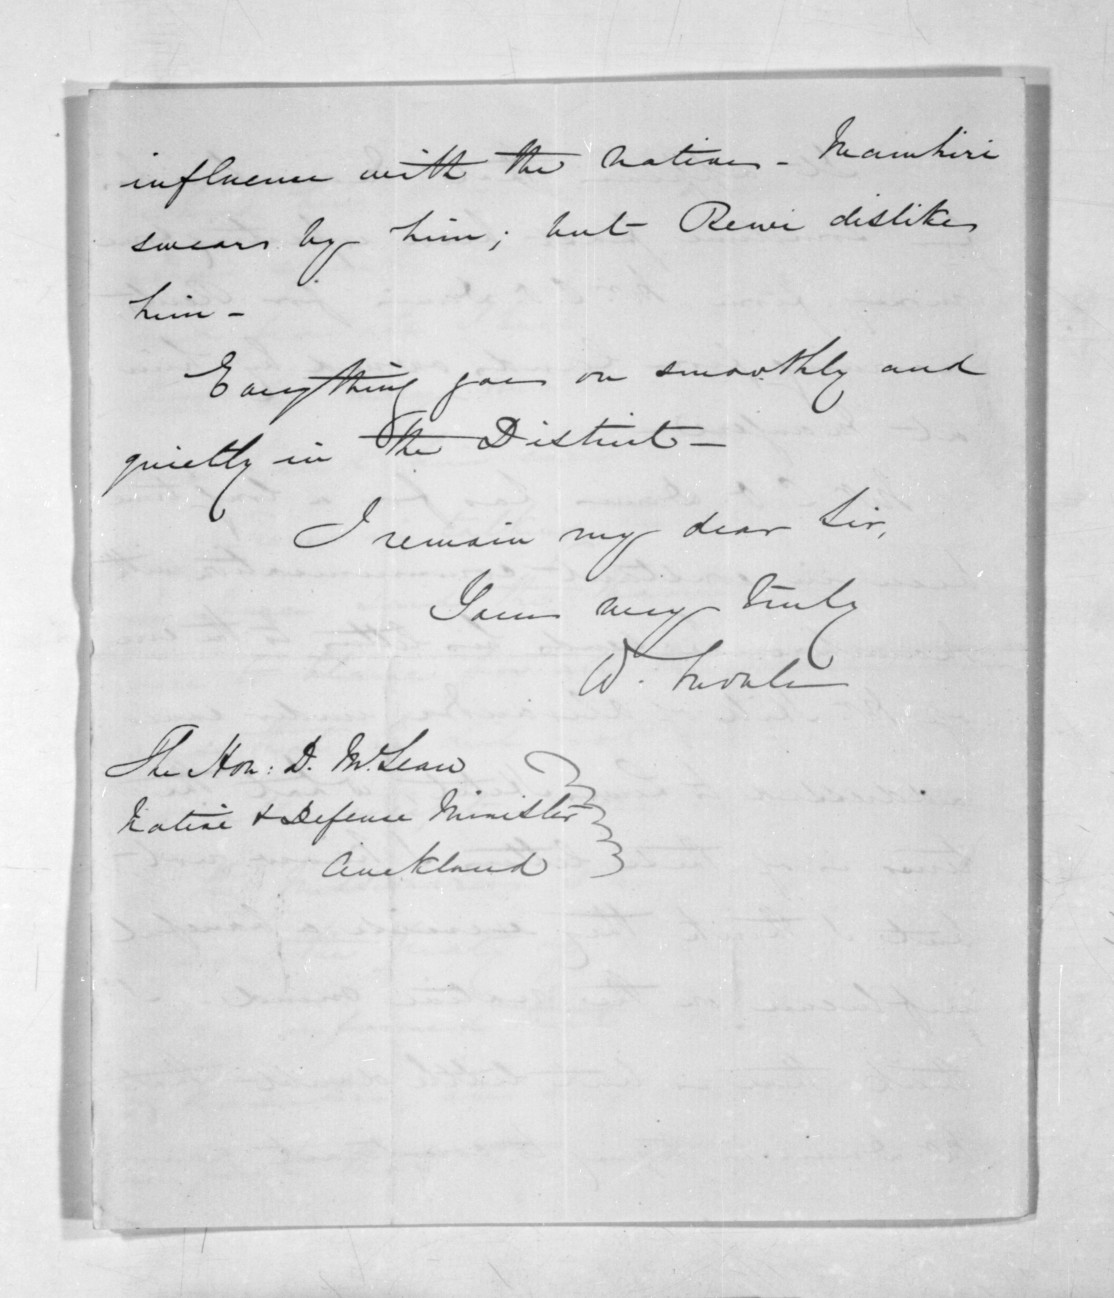 influence with the natives - Manuhiri
swears by him; but Rewi dislikes
him -
Everything goes on smoothly and
quietly in the District -
I remain my dear Sir,
Yours very truly
W.
The Hon: D. McLean
Native & Defense Minister
Auckland